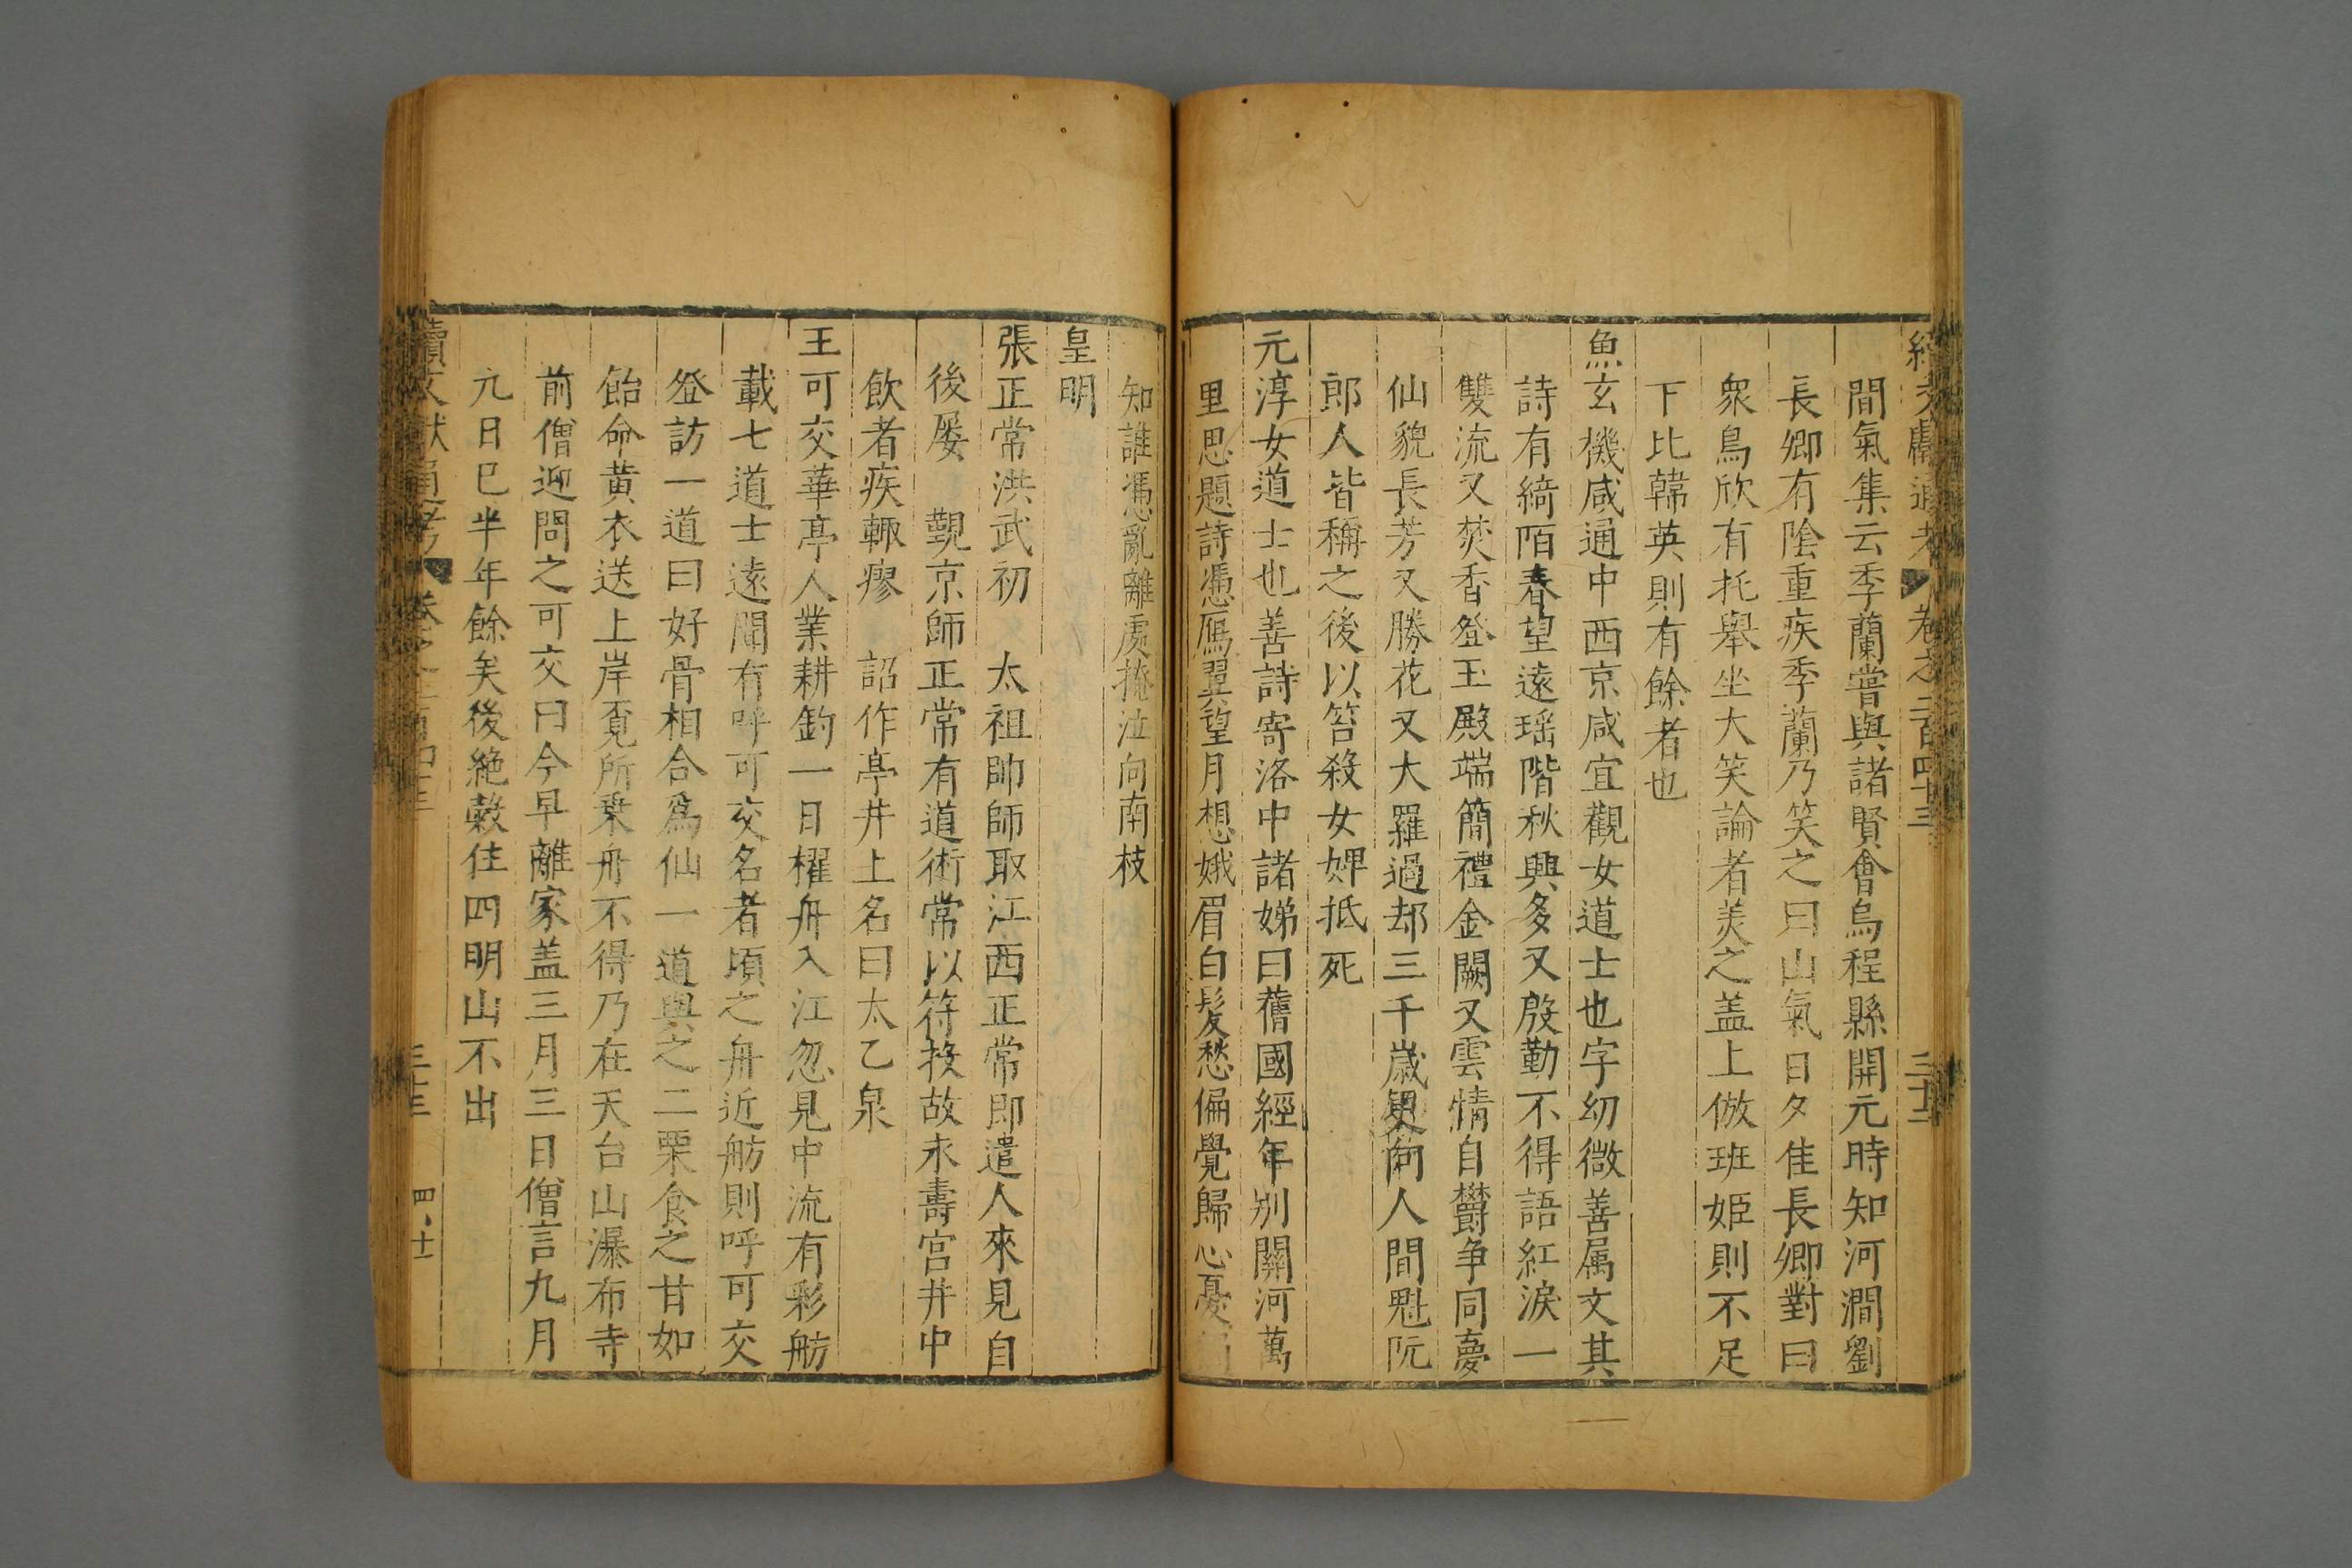 續文獻通考 卷之二百四十三 三十二
間氣集云季蘭嘗與諸賢會烏程縣開元時知河澗劉
長卿有陰重疾季蘭乃笑之曰山氣日夕佳長卿對曰
衆鳥欣有托舉坐大笑論者美之盖上倣班姫則不足
下比韓英則有餘者也
魚玄機咸通中西京咸宜觀女道士也字幼微善属文其
詩有綺陌春望遠瑶階秋興多又殷勤不得語紅淚一
雙流又焚香登玉殿端簡禮金闕又雲情自欝争同夢
仙貌長芳又勝花又大羅過却三千歲更向人間魁阮
郎人皆稱之後以笞殺女婢抵死
元淳女道士也善詩寄洛中諸娣曰舊國經年别關河萬
里思題詩憑鴈翼望月想娥眉白髮愁偏覺歸心憂
知誰憑亂離處掩泣向南枝
皇明
張正常洪武初 太祖帥師取江西正常即遣人來見自
後屡 覲京師正常有道術常以符投故永壽宫井中
飲者疾輙瘳 詔作亭井上名曰太乙泉
王可交華亭人業耕釣一日櫂舟入江忽見中流有彩舫
載七道士遠聞有呼可交名者頃之舟近舫則呼可交
登訪一道曰好骨相合爲仙一道與之二栗食之甘如
飴命黄衣送上岸覔所乗舟不得乃在天台山瀑布寺
前僧迎問之可交曰今早離家盖三月三日僧言九月
九日巳半年餘矣後絶糓住四明山不出
續文獻通考 卷之二百四十三 三十三 四十